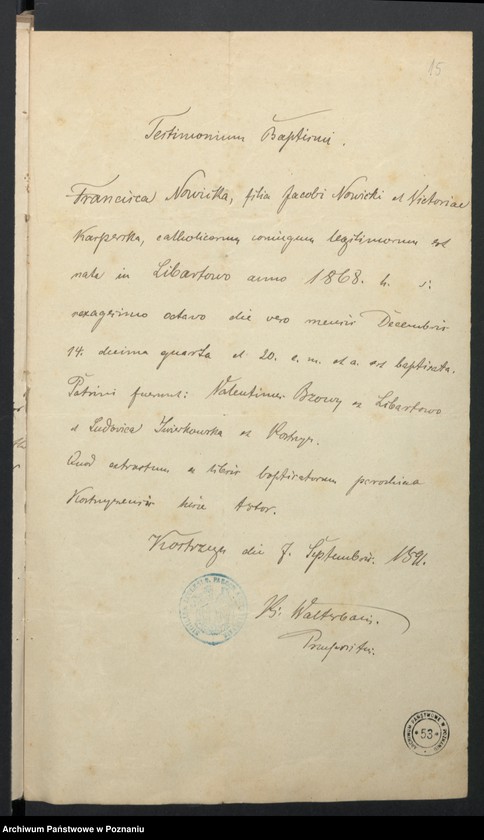 15
Testimonium Baptismi.
Francisca Nowicka, filia Jacobi Nowicki et Victoriae
Karperska, catholicorum coniugum legitimorum est
nata in Libartowo anno 1868. h. i.
sexagesimo octavo die vero mensis Decembris
14. decima quarta et 20. e. m. et a. est baptizata.
Patrini fuerunt: Valentinus Browy ex Libartowo
et Ludovica Swierkowska ex
Quod extractum ex libris baptizatorum parochiae
hisce testor.
Kostrzyn die 7. Septembris. 1891.
Praepositus.
ARCHIWUM PAŃSTWOWE W POZNANIU
* 53 *
Archiwum Państwowe w Poznaniu